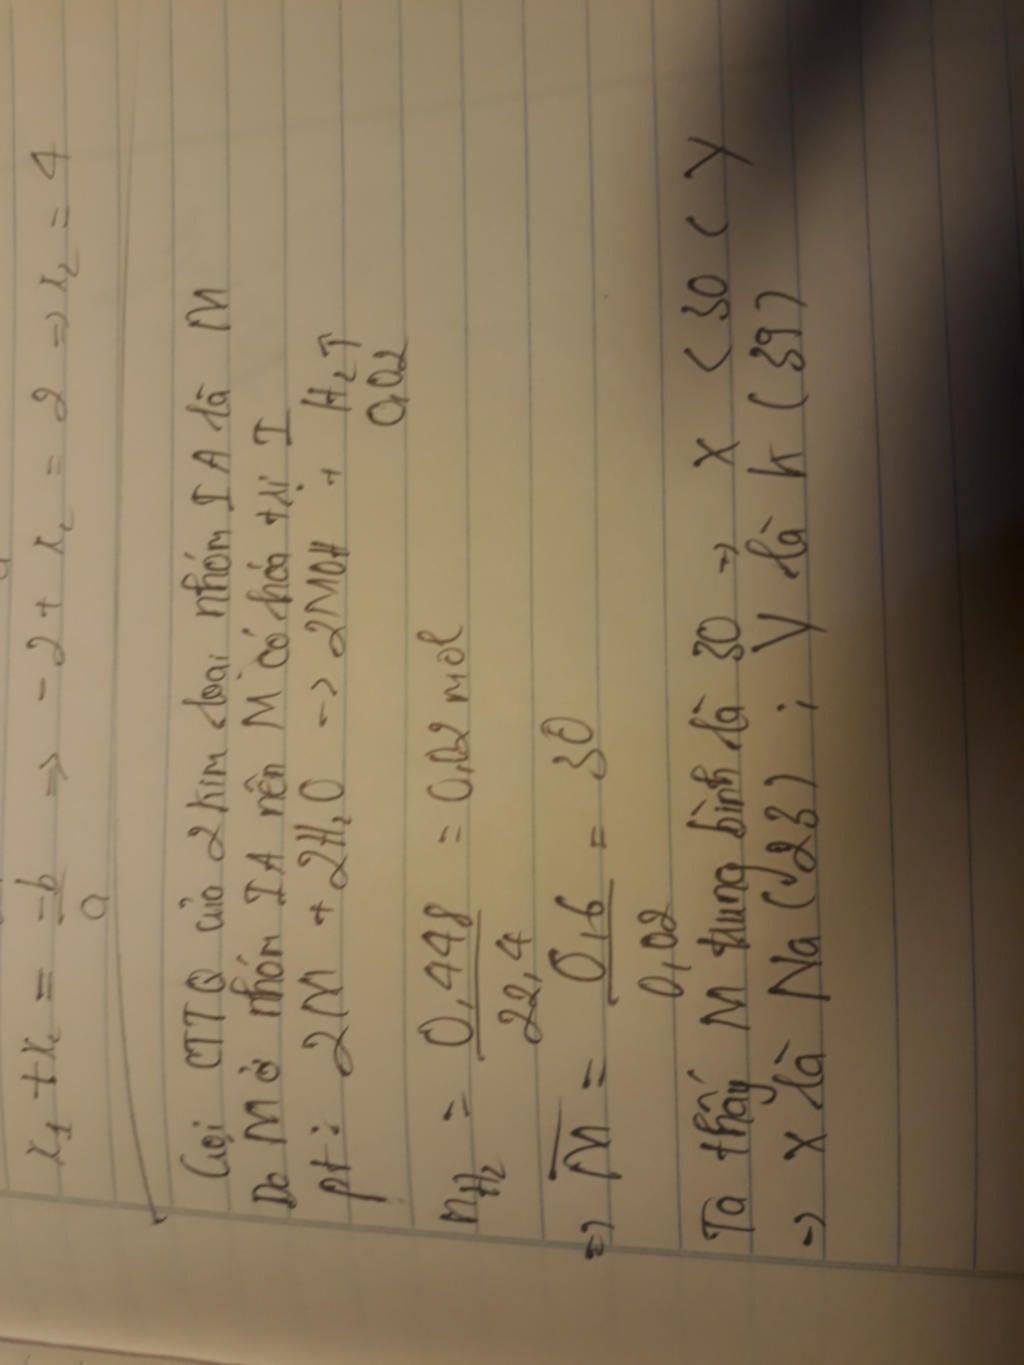 x₁ + x₂ = -b/a => -2 + x₂ = 2 -> x₂ = 4
Gọi CTTQ của 2 kim loại nhóm IA là M
Do M ở nhóm IA nên M có hóa trị I
pt: 2M + 2H₂O -> 2MOH + H₂↑
0,02
nH₂ = 0,448/22,4 = 0,02 mol
=> M̅ = 0,6/0,02 = 30
Ta thấy M trung bình là 30 -> X < 30 < Y
-> X là Na (23) ; Y là K (39)